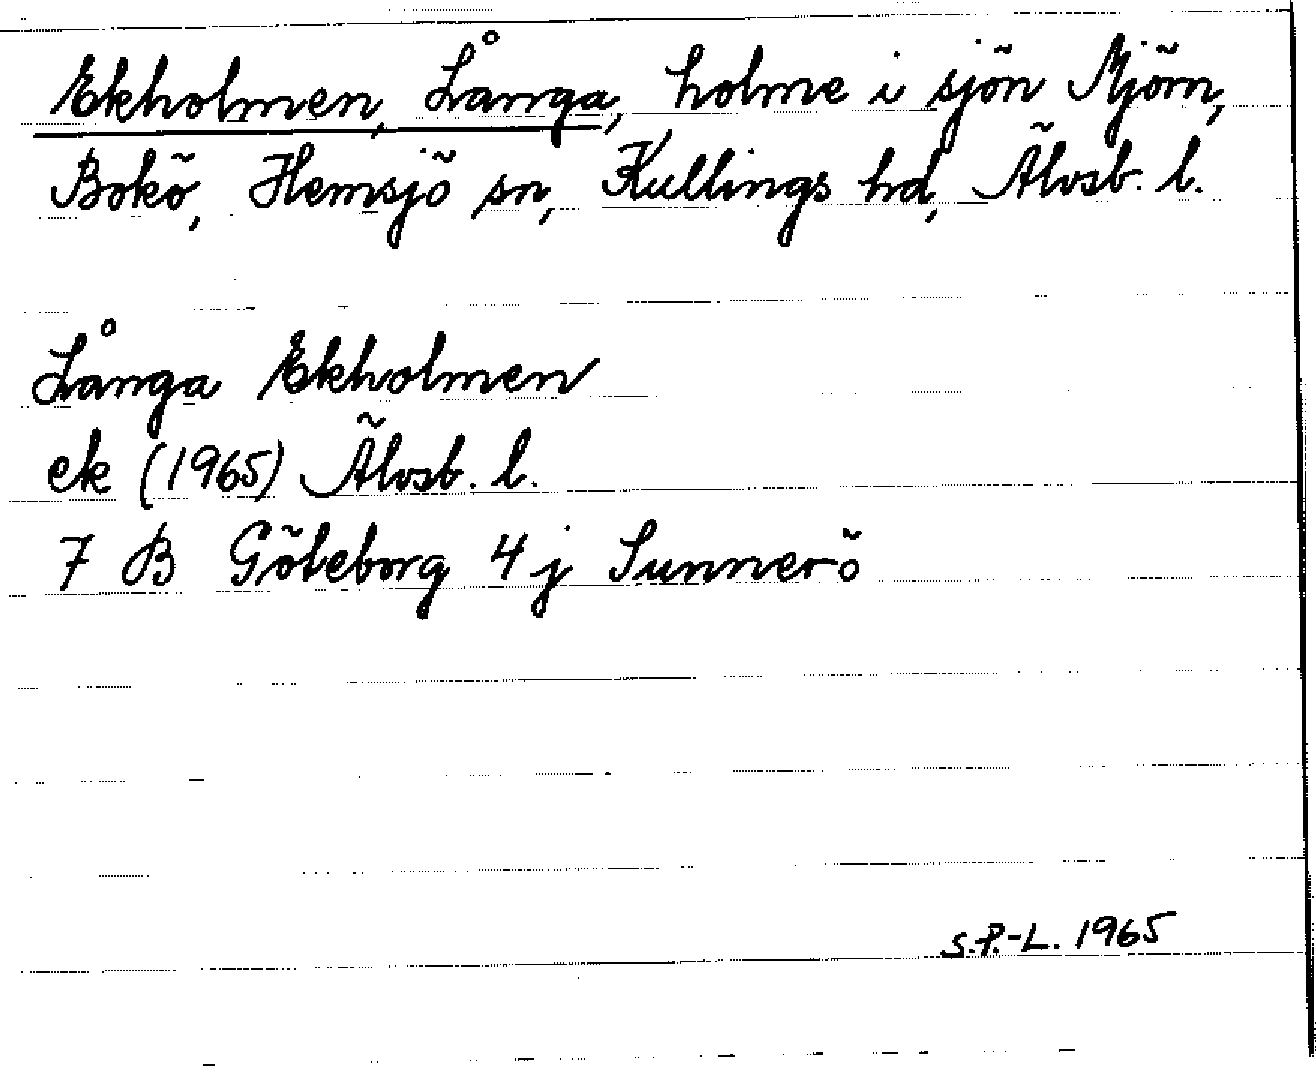 Ekholmen, Långa, holme i sjön Mjörn,
Bokö, Hemsjö sn, Kullings hd, Älvsb. l.
Långa Ekholmen
ek (1965) Älvsb. l.
7 B Göteborg 4 j Sunnerö
S.P.-L. 1965